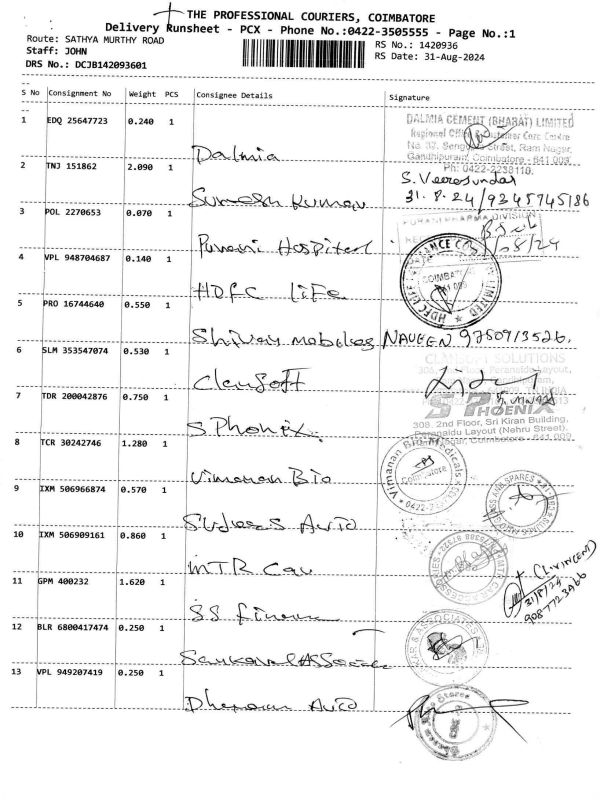 THE PROFESSIONAL COURIERS, COIMBATORE
Delivery Runsheet - PCX - Phone No.:0422-3505555 - Page No.:1
Route: SATHYA MURTHY ROAD
RS No.: 1420936
Staff: JOHN
RS Date: 31-Aug-2024
DRS No.: DCJB142093601
S No Consignment No Weight PCS Consignee Details Signature
1 EDQ 25647723 0.240 1 Dalmia
DALMIA CEMENT (BHARAT) LIMITED
Regional Office & Customer Care Centre
Street, Ram Nagar,
Gandhipuram, Coimbatore - 641 009
Ph: 0422-2238110
2 TNJ 151862 2.090 1 Suresh Kumar
S. Veerasundar
31.8.24/9245745186
3 POL 2270653 0.070 1 Purani Hospital
PHARMA DIVISION
4 VPL 948704687 0.140 1 HDFC Life
HDFC LIFE INSURANCE COMPANY LIMITED
5 PRO 16744640 0.550 1 Shivay mobiles NAVEEN 9750913526.
6 SLM 353547074 0.530 1 Clansoft
CLANSOFT SOLUTIONS
7 TDR 200042876 0.750 1 S.Phonix.
S PHOENIX
308, 2nd Floor, Sri Kiran Building,
Peranaidu Layout (Nehru Street),
Nagar, Coimbatore - 641 009
8 TCR 30242746 1.280 1 Vimanan Bio
Vimanan Bio-Medicals
Coimbatore
9 IXM 506966874 0.570 1 Auto
10 IXM 506909161 0.860 1 MTR Car
(L.VINCENT)
31/8/24
9087723966
11 GPM 400232 1.620 1 SS
12 BLR 6800417474 0.250 1
13 VPL 949207419 0.250 1 Auto